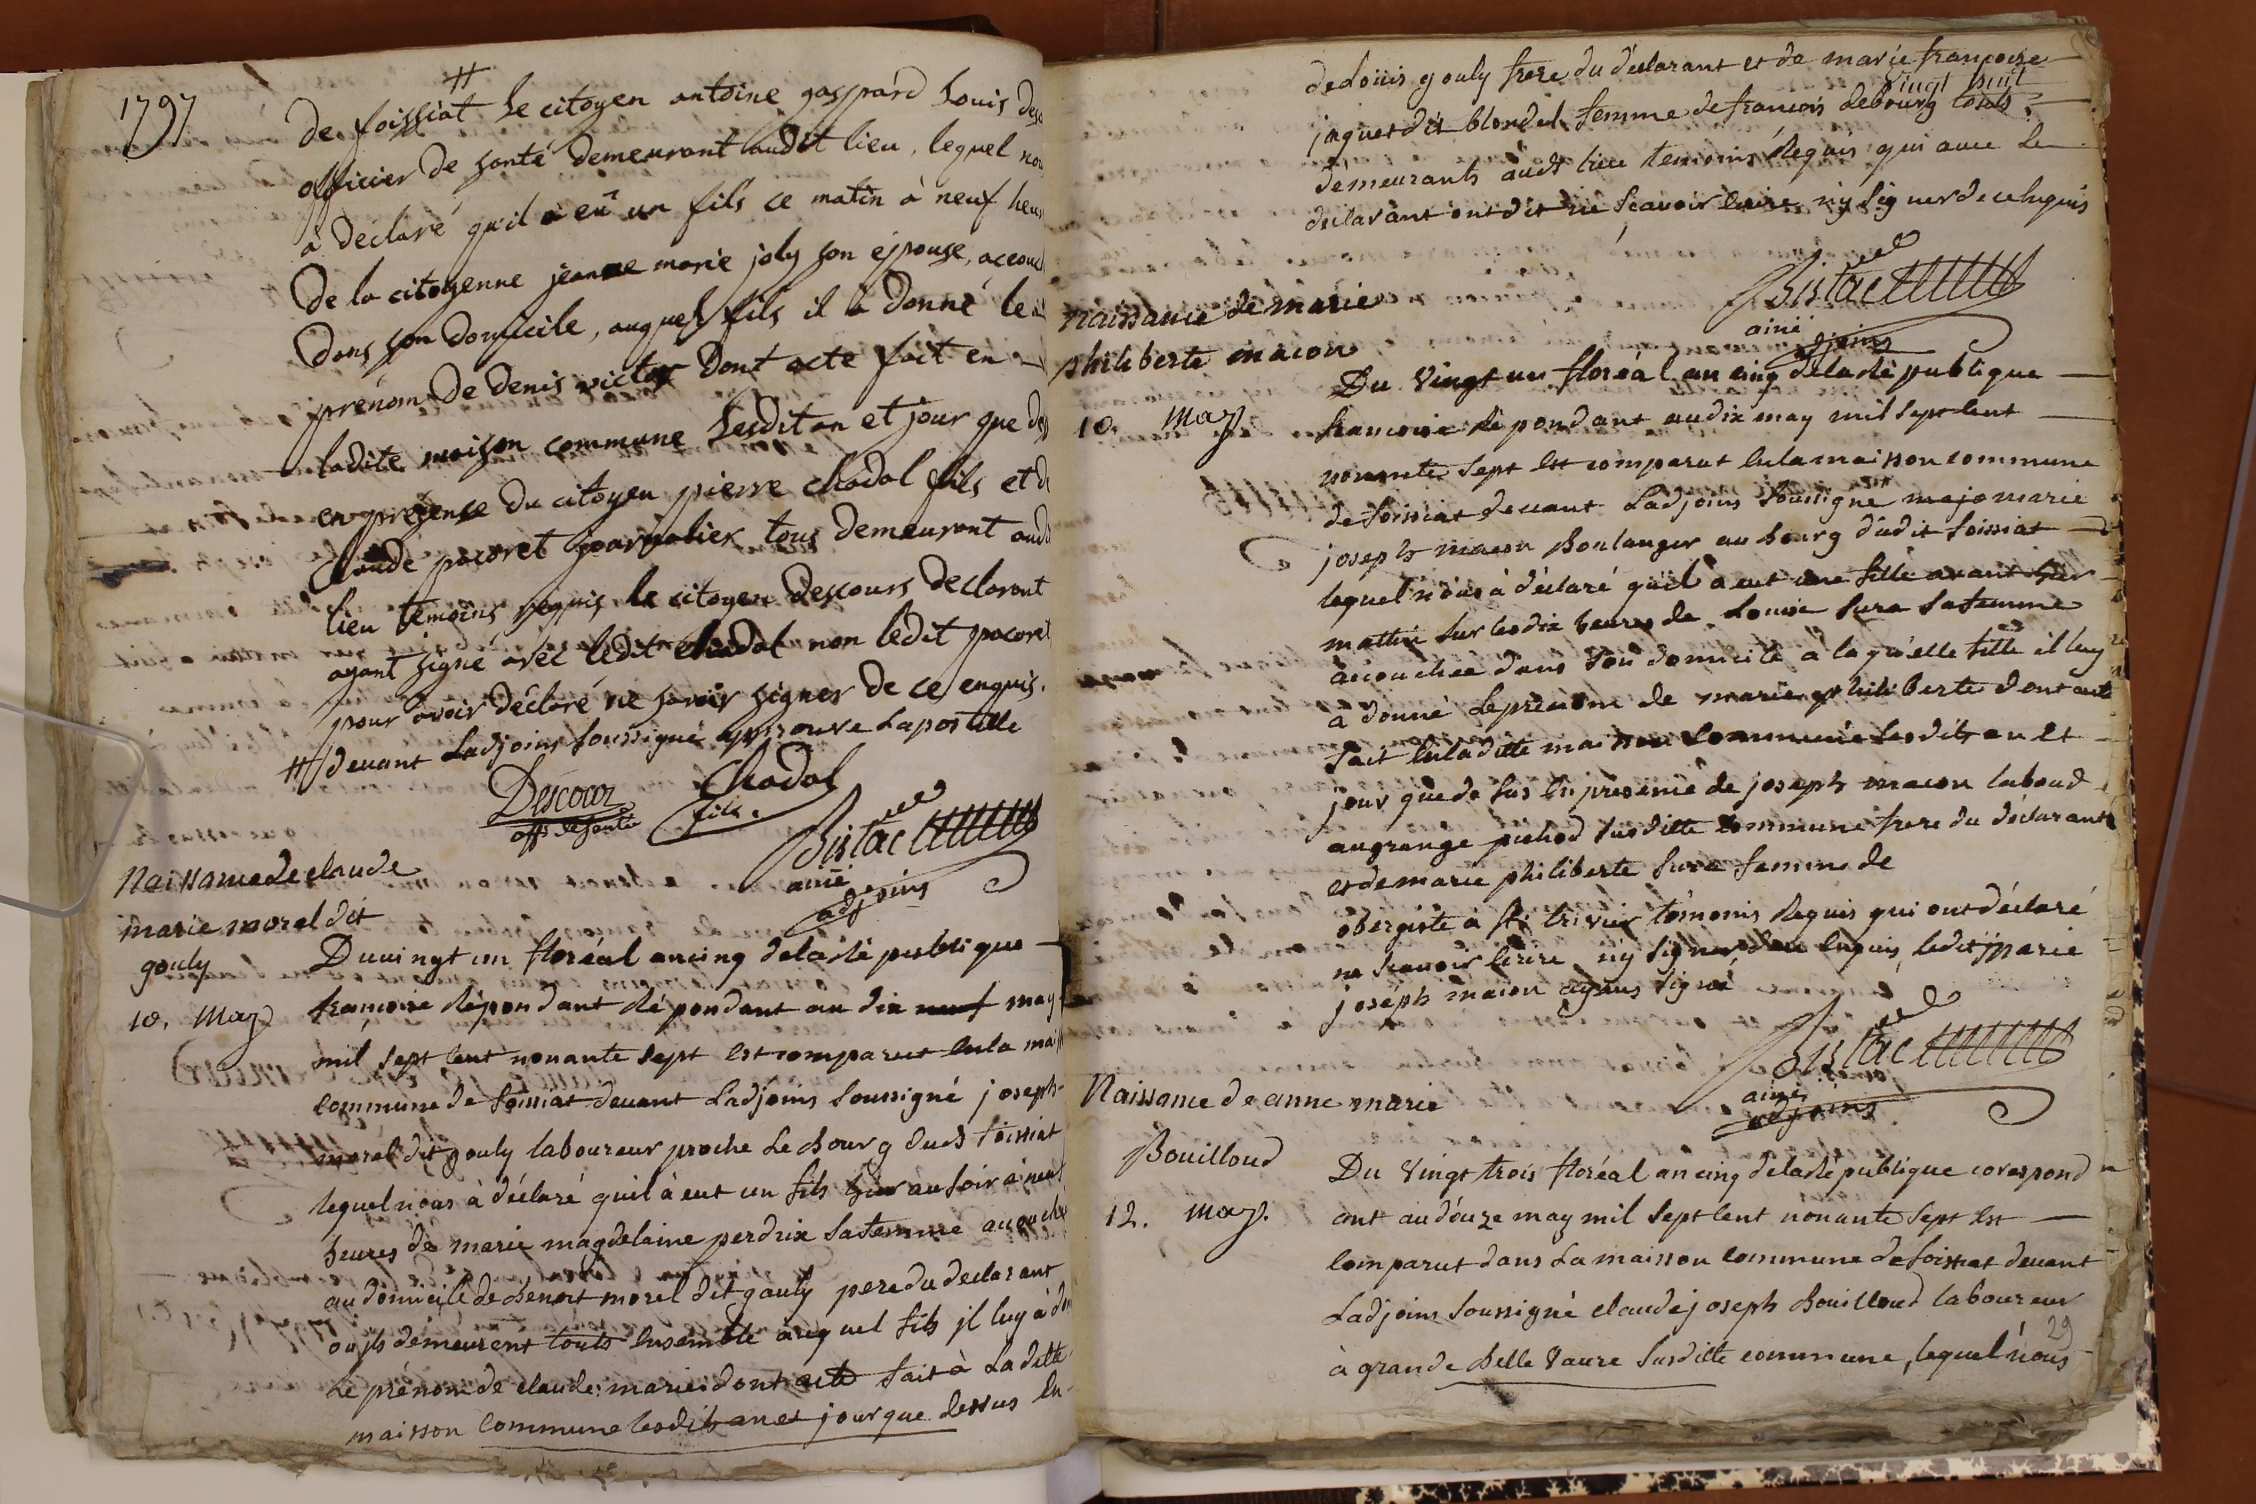 1797
#
de foissiat le citoyen antoine gasppard Louis
officier de santé demeurant audit lieu, lequel
à déclaré qu'il a eu un fils ce matin à neuf
De la citoyenne jeanne marie joly son épouse,
Dans son domicile, auquel fils il a donné le
prénom de denis victor dont acte fait en —
ladite maison commune lesdit an et jour que
en présense du citoyen pierre chadal fils et
claude pacoret journalier tous demeurant
lieu temoins requis le citoyen descours declarant
ayant signé avec ledit chadal non ledit pacoret
pour avoir déclaré ne savoir signer de ce enquis.
# devant Ladjoins soussigné approuve Lapostille
Descour Chadal
offr de santé fils.
Bistac
ainé
adjoins
Naissance de claude
marie morel dit
gouly
10. May
Du vingt un floréal an cinq de la république —
francoise répondant répondant au dix neuf may
mil sept cent nonante sept est comparut en la
commune de foissiat devant Ladjoins soussigné joseph
morel dit gouly laboureur proche Le bourg dudt foissiat
lequel nous à déclaré quil à eut un fils hier au soir à
heures de marie magdelaine perdrix sa femme
au domicile de benoit morel dit gouly pere du declarant
ou jls demeurent touts ensemble auquel fils jl luy à
Le prénom de claude: marie dont acte fait à Laditte
maison commune lesdits an et jour que dessus En
de Louis gouly frere du déclarant et de marie francoise
vingt huit
jaquet dit blondel femme de francois debourg touts
demeurants audt lieu temoins Requis qui avec Le
declarant ont dit ne scavoir Ecrire ny signer de ce Enquis
Bistac
ainé
adjoins
Naissance de marie
philiberte macon
10. May
Du vingt un floréal an cinq de la république —
francoise répondant au dix may mil sept cent —
nonante sept Est comparut En la maisson commune
de foissiat devant Ladjoins soussigné marie
joseph macon Boulanger au bourg dudit foissiat —
lequel nous à déclaré quil à eut une fille avant hier
mattin sur les dix heures de Louise sura sa femme
accouchée dans son domicile à la quelle fille il luy
à donné Le prénom de marie philiberte dont acte
fait En laditte maisson commune lesdits an et —
jour que de sus En présence de joseph macon
au grange pichod susditte commune frere du déclarant
et de marie philiberte sura femme de
obergiste à st trivier temoins Requis qui ont déclaré
ne scavoir Ecrire ny signer de ce Enquis, ledit marie
joseph macon ayans signé
Bistac
ainé
adjoins
Naissance de anne marie
Bouilloud
12. May.
Du vingt trois floréal an cinq de la république corespond
ant au douze may mil sept cent nonante sept Est —
Comparut dans La maisson commune de foissiat devant
Ladjoins soussigné claude joseph Bouilloud laboureur
à grande Belle vavre susditte commune, lequel nous
29